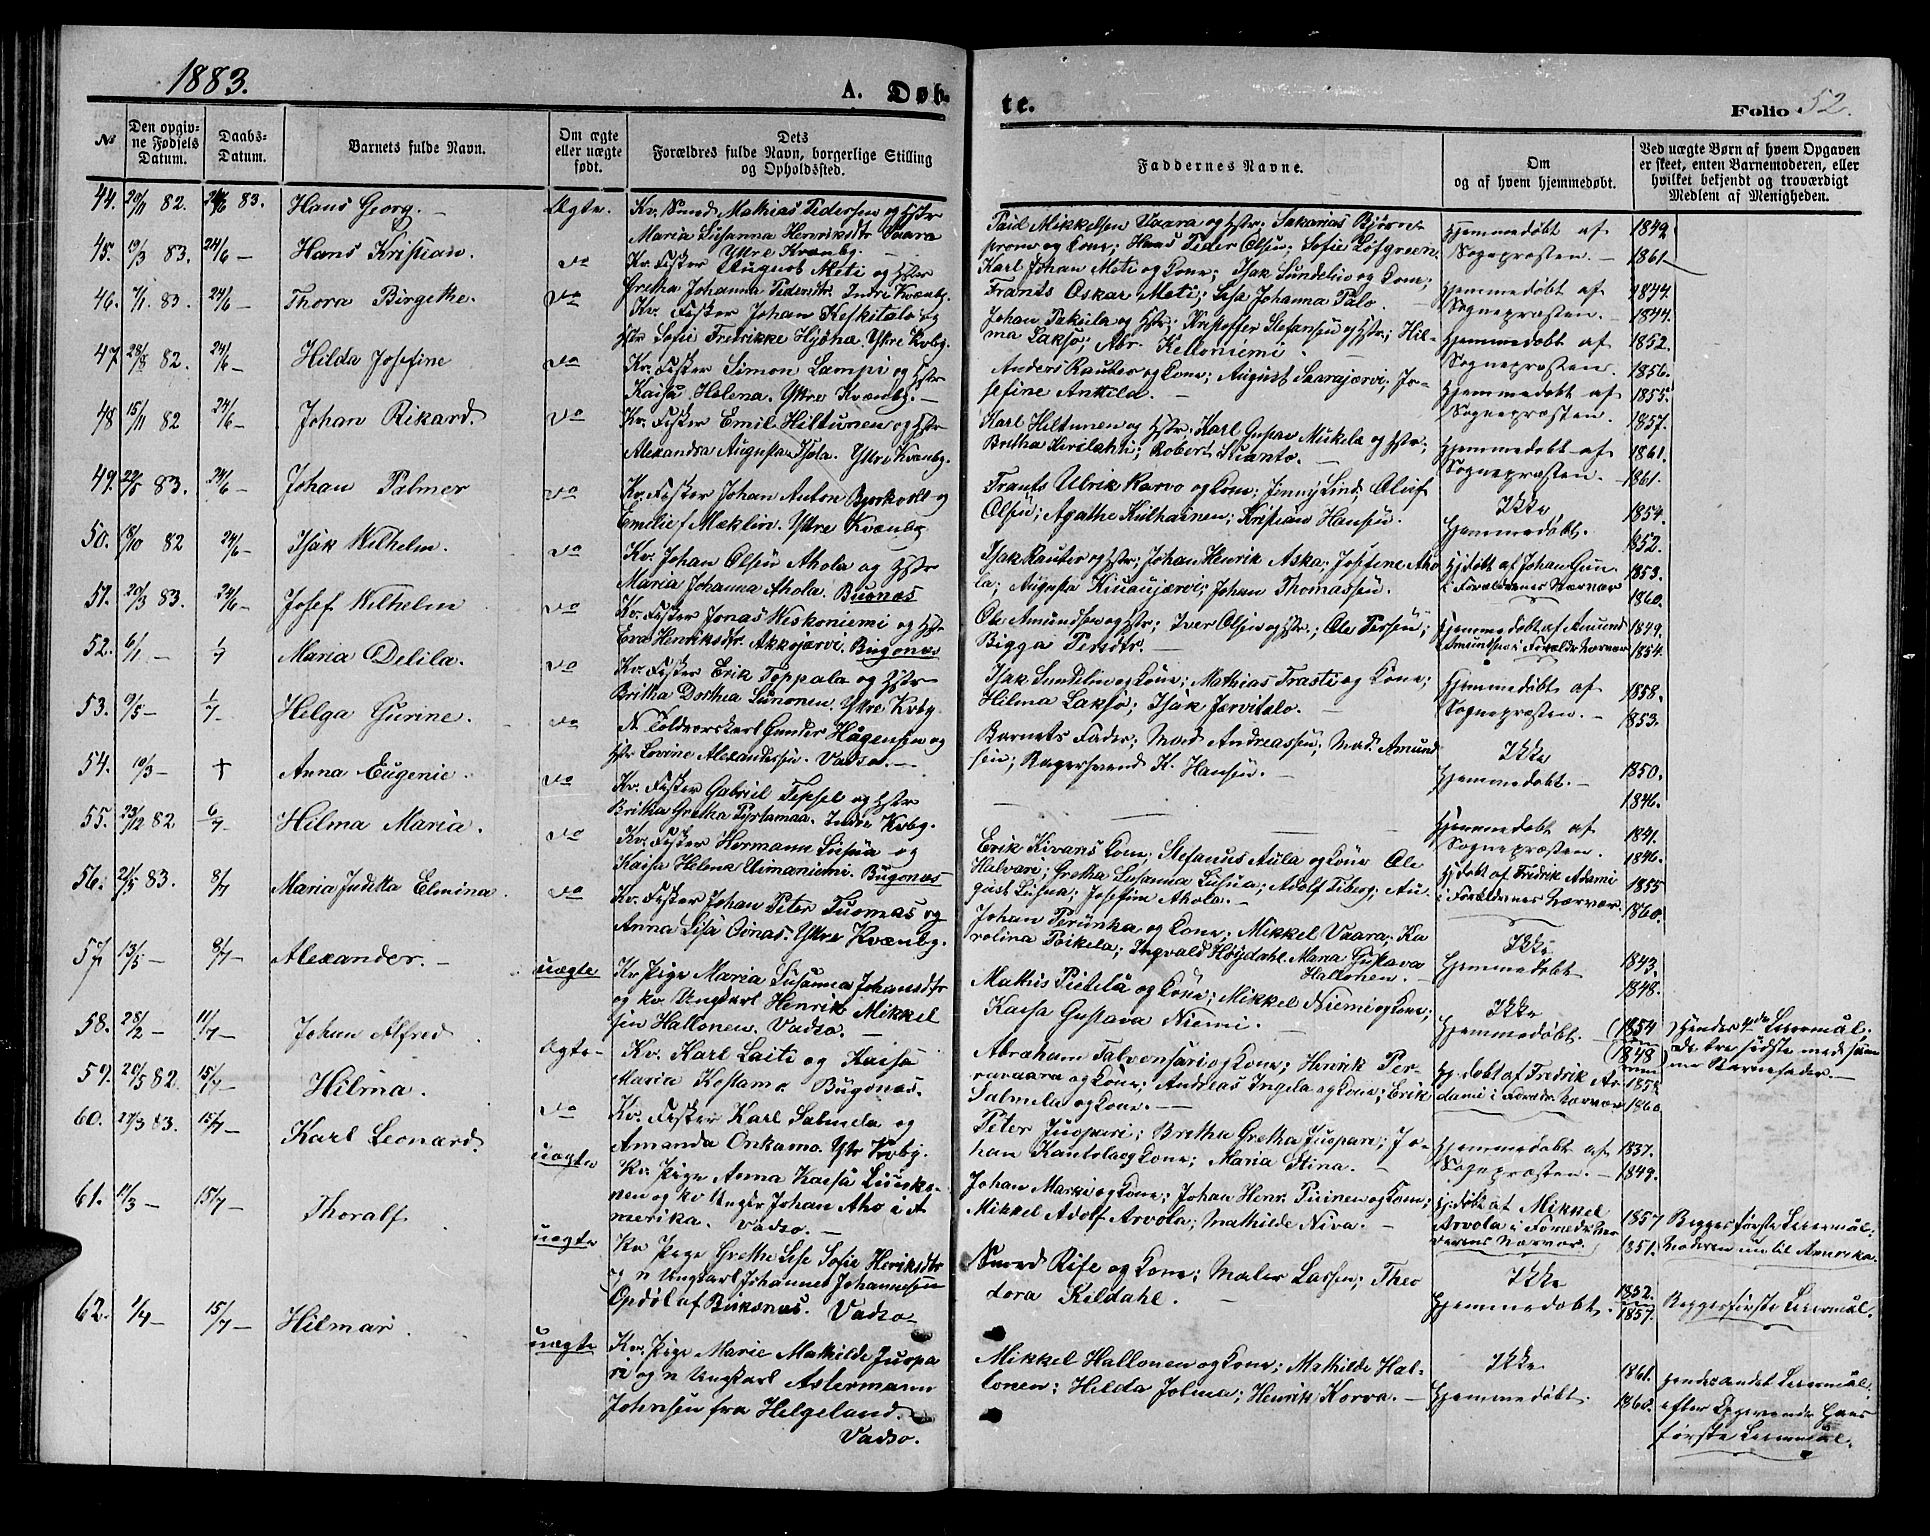 1883.
A. Døb-
te.
Folio 52.
№
Den opgiv-
ne Fødsels
Datum.
Daabs-
Datum.
Barnets fulde Navn.
Om ægte
eller uægte
født.
Dets
Forældres fulde Navn, borgerlige Stilling
og Opholdssted.
Faddernes Navne.
Om
og af hvem hjemmedøbt.
Ved uægte Børn af hvem Opgaven
er skeet, enten Barnemoderen, eller
hvilket bekjendt og troværdigt
Medlem af Menigheden.
44. 20/11 82. 24/6 83. Hans Georg. Ægte.
Kv. Svend Mathias Pedersen og Hstr
Maria Susanna Henriksdtr Vaara
Yttre Kvænbg.
Paul Mikkelsen Vaara og Hstr; Sakarias Bjørn-
strøm og Kone; Hans Peder Olsen; Sofie Løfgreen
Hjemmedøbt af
Sognepræsten.
1849
1861
45. 19/3 83. 24/6 Hans Kristian. do
Kv. Fisker August Meti og Hstr
Gretha Johanna Pedersdtr Indre Kvænbg.
Karl Johan Meti og Kone; Isak Sundelin og Kone;
Frants Oskar Meti; Lisa Johanna Palo.
Hjemmedøbt af
Sognepræsten.
1844.
1844.
46. 7/1 83. 24/6 Thora Birgethe. do
Kv. Fisker Johan Keskitalo og
Hstr Sofie Fredrikke Yttre Kvbg.
Johan Takeila og Hstr; Kristoffer Stefansen og Hstr; Hil-
ma Lakso; Abr. Kelloniemi.
Hjemmedøbt af
Sognepræsten.
1852.
1856.
47. 28/8 82. 24/6 Hilda Josefine do
Kv. Fisker Simon Lampi og Hstr
Kaisa Helena. Yttre Kvænbg.
Anders Rautio og Kone; August Saarajærvi; Jo-
sefine Anttila.
Hjemmedøbt af
Sognepræsten.
1855.
1857.
48 15/11 82 24/6 Johan Rikard. do
Kv. Fisker Emil Hiltunen og Hstr
Alexandra Augusta Isola. Yttre Kvænbg.
Karl Hiltunen og Hstr; Karl Gustav Mikkela og Hstr;
Bretha Hirsilahti; Robert Suanto.
Hjemmedøbt af
Sognepræsten.
1861.
1861.
49. 22/5 83. 24/6 Johan Palmer do
Kv. Fisker Johan Anton Bjørkvoll og
Emilie f. Mæklin. Yttre Kvænbg
Frants Ulrik Karvo og Kone; Jenny Lind; Oluf
Olsen; Agathe Kulhainen; Kristian Hansen.
Ikke
Hjemmedøbt.
1854.
1852.
50. 18/10 82 24/6 Isak Wilhelm. do
Kv. Johan Olsen Ahola og Hstr
Maria Johanna Ahola. Bugønæs
Isak Rautio og Hstr; Johan Henrik Aska; Josefine Aho-
la; Augusta Kiuaujærvi; Johan Thomassen.
Hj. døbt af Johan Gun
i Forældrenes Nærvær
1853.
1860.
51. 20/3 83. 24/6 Josef Wilhelm do
Kv. Fisker Jonas Weskoniemi og Hstr
Eva Henriksdtr. Akkajærvi. Bugønæs
Ole Amundsen og Hstr; Iver Olsen og Hstr.; Ole Persen;
Bigga Persdtr.
Hjemmedøbt af Amund
Amundsen i Forældr. Nærvær
1849.
1854.
52. 6/1 1/7 Maria Delila. do
Kv. Fisker Erik Toppala og Hstr
Britha Dorthea Lunonen. Yttre Kvbg.
Isak Sundelin og Kone; Mathias Frasti og Kone;
Hilma Lakso; Isak Jærvitalo.
Hjemmedøbt af
Sognepræsten.
1858.
1853.
53. 9/5 1/7 Helga Gurine. do
N. Toldroerskarl Gunder Hågensen og
Hstr Lovine Alexandersen. Vadsø.
Barnets Fader; Mad Andreassen; Mad. Amund
sen; Bagersvend K. Hansen.
Ikke
Hjemmedøbt.
1850.
1846.
54. 10/3 † Anna Eugenie. do
Kv. Fisker Gabriel Tepsel og Hstr
Britha Gretha Pyrtamaa. Indre Kvbg.
Hjemmedøbt af
Sognepræsten.
1841.
1846.
55. 23/12 82 6/7 Hilma Maria. do
Kv. Fisker Hermann Lusua og
Kaisa Helena Uimaniemi. Bugønæs
Erik Kivaris Kone; Stefanus Aula og Kone Ole
Halvari; Gretha Susanna Lusua; Adolf Fiberg; Au-
gust Lusua; Josefine Ahola.
Hj. døbt af Fredrik Adami
i Forældrenes Nærvær.
1855
1860.
56. 21/5 83. 8/7 Maria Juditta Elmina. do
Kv. Fisker Johan Peter Tuomas og
Anna Lisa Oinas. Yttre Kvænbg.
Johan Perunka og Kone; Mikkel Vaara; Ka
rolina Poikela; Ingvald Høydahl. Maria Gustava
Hallonen.
Ikke
Hjemmedøbt
1843.
1848.
57. 13/5 8/7 Alexander. uægte
Kv. Pige Maria Susanna Johansdtr
og kv. Ungkarl Henrik Mikkel
sen Hallonen. Vadsø.
Mathis Pietila og Kone; Mikkel Niemi og Kone;
Kaisa Gustava Niemi.
Ikke
Hjemmedøbt.
1854
1848
Hendes 4de Leiermål.
De tre sidste med sam
me Barnefader.
58. 28/2 11/7 Johan Alfred. Ægte
Kv. Karl Laiti og Kaisa
Maria Kostamo. Bugønæs.
Abraham Talvensari og Kone; Henrik Per-
ravaara og Kone; Andreas Ingela og Kone; Erik
Salmela og Kone.
Hj. døbt af Fredrik A-
dami i Forældr. Nærvær
1858
1860
59. 20/5 82. 15/7 Hilma. do
Kv. Fisker Karl Salmela og
Amanda Onkamo. Ytr Kvbg.
Peter Juopari; Bretha Gretha Juopari; Jo-
han Kantola og Kone; Maria Stina.
Hjemmedøbt af
Sognepræsten.
1837.
1849.
60. 27/3 83. 15/7 Karl Leonard. uægte
Kv. Pige Anna Kaisa Luusko-
nen og kv Ungkr Johan Aho i A
merika. Vadsø.
Johan Marki og Kone; Johan Henr. Puinen og Kone;
Mikkel Adolf Arvola; Mathilde Niva.
Hj. døbt af Mikkel
Arvola i Forældr Mo
derens Nærvær.
1857
1851.
Begges første Leiermål.
Moderen nu til Amerika.
61. 17/3 15/7 Thoralf uægte
Kv Pige Grethe Lise Sofie Henriksdtr
og n Ungkarl Johannes Johannesen
Opdøl af Buksnæs. Vadsø
Smed Rife og Kone; Maler Lassen; Theo
dora Kildahl.
Ikke
Hjemmedøbt.
1852.
1857.
Begges første Leiermål.
62. 1/4 15/7 Hilmar. uægte
Kv. Pige Marie Mathilde Juopa
ri og n Ungkarl Astermann
Johnsen fra Helgeland.
Vadsø.
Mikkel Hallonen og Kone; Mathilde Hal-
lonen; Hilda Jolma; Henrik Korva.
Ikke
Hjemmedøbt.
1861.
1860.
Hendes andet Leiermål.
efter Opgivende Hans
første Leiermål.